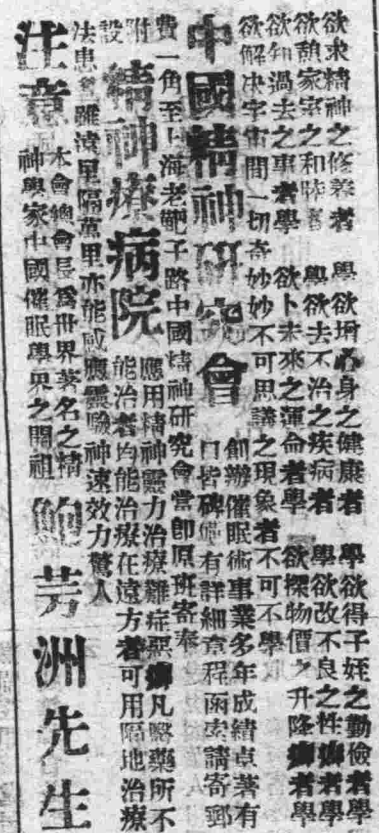 欲求精神之修養者 學欲增心身之健康者 學欲得子姪之勤儉者學
欲憩家室之和睦者 學欲去不治之疾病者 學欲改不良之性癖者學
欲知過去之事者學 欲卜未來之運命者學 欲探物價之升降癖者學
欲解决宇宙間一切奇妙妙不可思議之現象者不可不學
中國精神研究會
創辦催眠術事業多年成績卓著有
口皆碑備有詳細章程函索請寄郵
費一角至上海老靶子路中國精神研究會當卽原班寄奉
附設
精神療病院
應用精神靈力治療難症惡癖凡醫藥所不
能治者均能治療在遠方者可用隔地治療
法患者雖遠星隔萬里亦能感應靈驗神速效力驚人
注意
本會總會長爲世界著名之精
神學家中國催眠學界之開祖
鮑芳洲先生